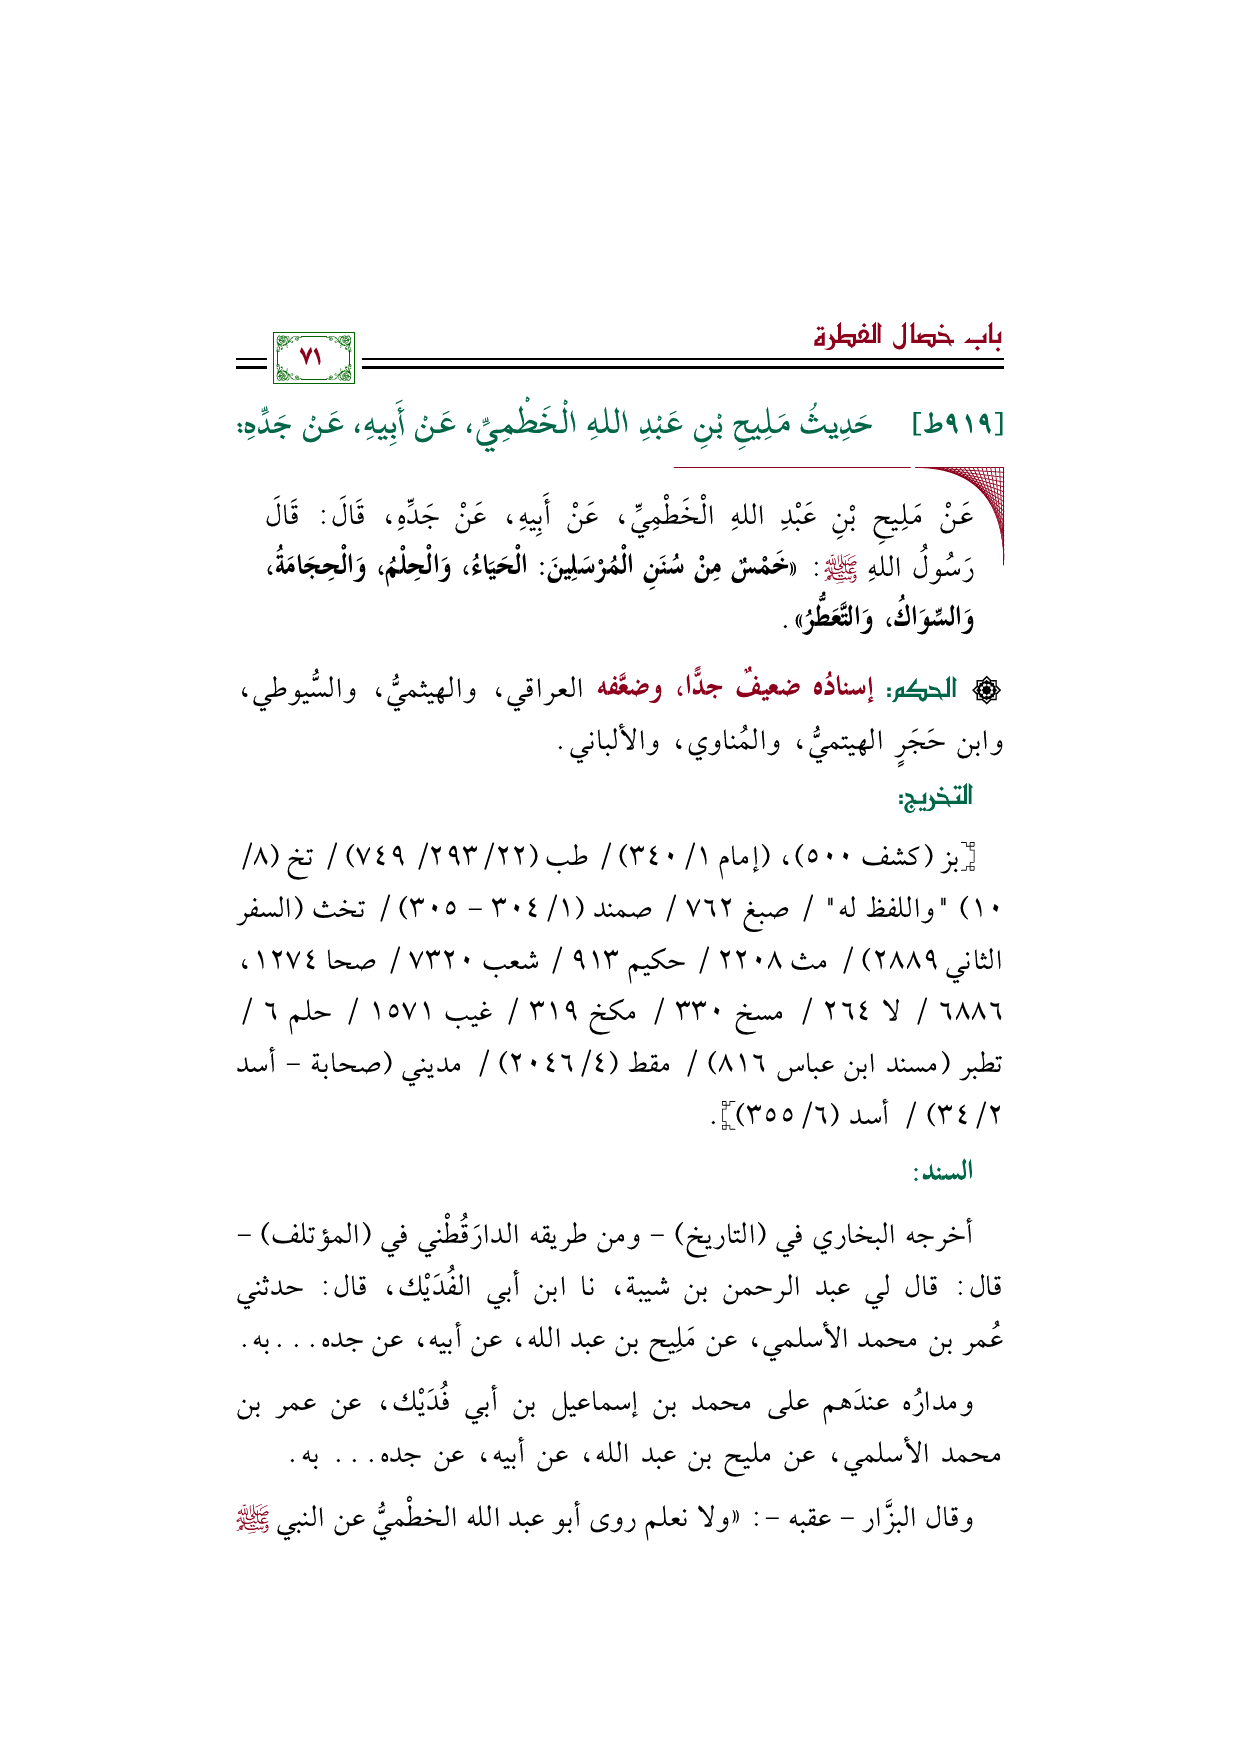 باب خصال الفطرة
٧١
[٩١٩ط] حَدِيثُ مَلِيحِ بْنِ عَبْدِ اللهِ الْخَطْمِيِّ، عَنْ أَبِيهِ، عَنْ جَدِّهِ:
عَنْ مَلِيحِ بْنِ عَبْدِ اللهِ الْخَطْمِيِّ، عَنْ أَبِيهِ، عَنْ جَدِّهِ، قَالَ: قَالَ
رَسُولُ اللهِ ﷺ: «خَمْسٌ مِنْ سُنَنِ الْمُرْسَلِينَ: الْحَيَاءُ، وَالْحِلْمُ، وَالْحِجَامَةُ،
وَالسِّوَاكُ، وَالتَّعَطُّرُ».
الحكم: إسنادُه ضعيفٌ جدًّا، وضعَّفه العراقي، والهيثميُّ، والسُّيوطي،
وابن حَجَرٍ الهيتميُّ، والمُناوي، والألباني.
التخريج:
[بز (كشف ٥٠٠)، (إمام ١/ ٣٤٠)/ طب (٢٢/ ٢٩٣/ ٧٤٩)/ تخ (٨/
١٠) "واللفظ له" / صبغ ٧٦٢ / صمند (١/ ٣٠٤ – ٣٠٥)/ تخث (السفر
الثاني ٢٨٨٩)/ مث ٢٢٠٨ / حكيم ٩١٣ / شعب ٧٣٢٠ / صحا ١٢٧٤،
٦٨٨٦ / لا ٢٦٤ / مسخ ٣٣٠ / مكخ ٣١٩ / غيب ١٥٧١ / حلم ٦ /
تطبر (مسند ابن عباس ٨١٦)/ مقط (٤/ ٢٠٤٦)/ مديني (صحابة – أسد
٢/ ٣٤)/ أسد (٦/ ٣٥٥)].
السند:
أخرجه البخاري في (التاريخ) – ومن طريقه الدارَقُطْني في (المؤتلف) –
قال: قال لي عبد الرحمن بن شيبة، نا ابن أبي الفُدَيْك، قال: حدثني
عُمر بن محمد الأسلمي، عن مَلِيح بن عبد الله، عن أبيه، عن جده...به.
ومدارُه عندَهم على محمد بن إسماعيل بن أبي فُدَيْك، عن عمر بن
محمد الأسلمي، عن مليح بن عبد الله، عن أبيه، عن جده... به.
وقال البزَّار – عقبه –: «ولا نعلم روى أبو عبد الله الخطْميُّ عن النبي ﷺ